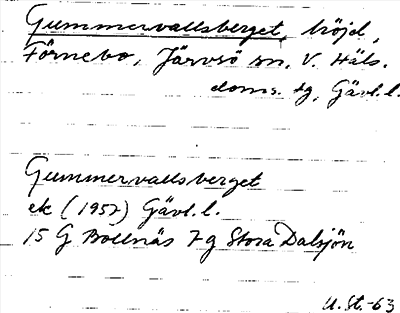 Gummervallsberget, höjd,
Förnebo, Järvsö sn, V. Häls.
doms. tg, Gävl.l.
Gummervallsberget
ek (1957) Gävl.l.
15 G Bollnäs 7g Stora Dalsjön
U.St.-63